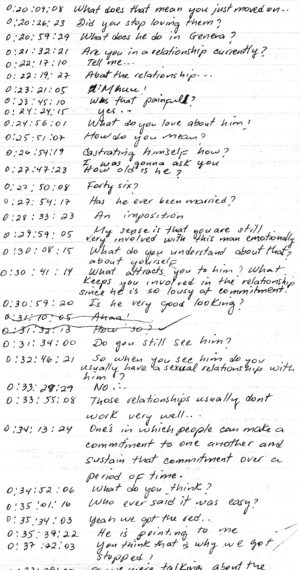 0:20:09:08 What does that mean you just moved on..
0:20:26:23 Did you stop loving them?
0:20:59:29 What does he do in Geneva?
0:21:32:21 Are you in a relationship currently?
0:22:17:10 Tell me...
0:22:19:27 About the relationship...
0:23:21:05
0:23:45:10 Was that painful?
0:24:24:15 yes..
0:24:56:01 What do you love about him?
0:25:51:07 How do you mean?
0:26:54:19 Castrating himself how?
I was gonna ask you
0:27:47:23 How old is he?
0:27:50:08 Forty six?
0:27:54:17 Has he ever been married?
0:28:33:23 An imposition
0:29:59:05 My sense is that you are still
very involved with this man emotionally
0:30:08:15 What do you understand about that?
about yourself
0:30:41:19 What attracts you to him? What
keeps you involved in the relationship
since he is so lousy at commitment.
0:30:59:20 Is he very good looking?
0:31:10:05 Ahaa!
0:31:32:13 How so?
0:31:34:00 Do you still see him?
0:32:46:21 So when you see him do you
usually have a sexual relationship with
him?
0:33:28:29 No...
0:33:55:08 Those relationships usually dont
work very well...
0:34:13:24 One's in which people can make a
commitment to one another and
sustain that commitment over a
period of time.
0:34:52:06 What do you think?
0:35:01:16 Who ever said it was easy?
0:35:34:03 Yeah we got the red..
0:35:39:22 He is pointing to me
0:37:22:03 You think that is why we got
stopped?
talking about the